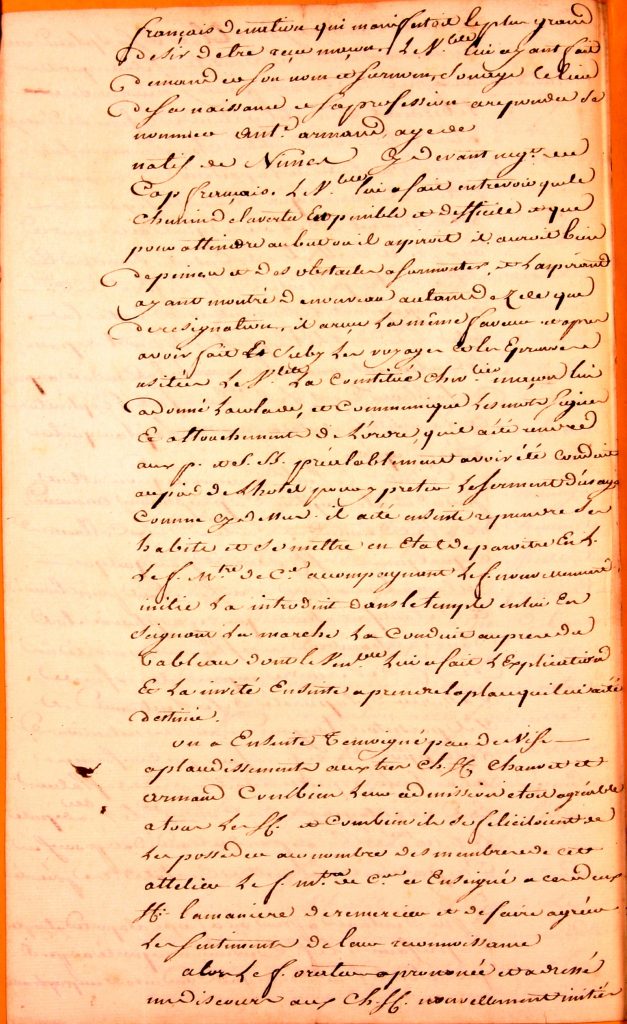 français de nation qui manifestoit le plus grand
desir d'etre reçu maçon, Le V.ble lui ayant fait
demander son nom et surnom, son age Le lieu
de sa naissance et sa profession a repondu se
nommer Ant.e armand, agé de
natif de Nimes cy devant neg.t au
Cap français. Le V.ble lui a fait entrevoir que le
chemin de la vertu Est penible et difficile et que
pour atteindre au but ou il aspiroit il auroit bien
de peines et des obstacles a surmonter, et L'aspirant
ayant montré de nouveau autant de Zele que
de resignation, il a reçu La même faveur et apres
avoir fait Et Suby Les voyages et les Epreuves
usitées Le V.ble La Constitué Chev.lier maçon lui
a donné L'accolade, et Communiqué Les mots Signes
Et attouchements de L'ordre, qu'il a été rendre
aux p. et S. SS. préalablement avoir été Conduit
au pied de L'hotel pour y preter Le serment d'usage
Comme cy dessus. il a été ensuite reprendre ses
habits et se mettre en Etat de paroitre En L.
Le f. M.tre de C.es accompagnant Le f. nouvellement
initié La introduit dans le temple en lui En
seignant La marche La Conduit aupres du
Tableau dont le Ven.ble Lui a fait L'Explication
Et La invité Ensuite a prendre la place qui lui a été
destinée.
on a Ensuite temoigné par de Vifs
aplaudissements aux tres Ch. ff. Chauvet et
armand Combien Leur admission etoit agréable
a tous Les ff. et Combien ils se felicitoient de
Les posseder au nombre des membres de cet
attelier Le f. m.tre de C.es a Enseigné a ces deux
ff. la maniere de remercier et de faire agréer
Les sentiments de leur reconnoissance
alors Le f. orateur a prononcé et adressé
un discours aux Ch. ff. nouvellement initiés